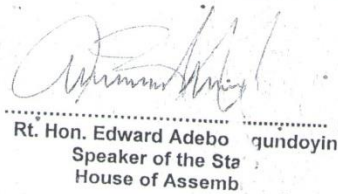 Rt. Hon. Edward Adebo gundoyin
Speaker of the Sta
House of Assemb